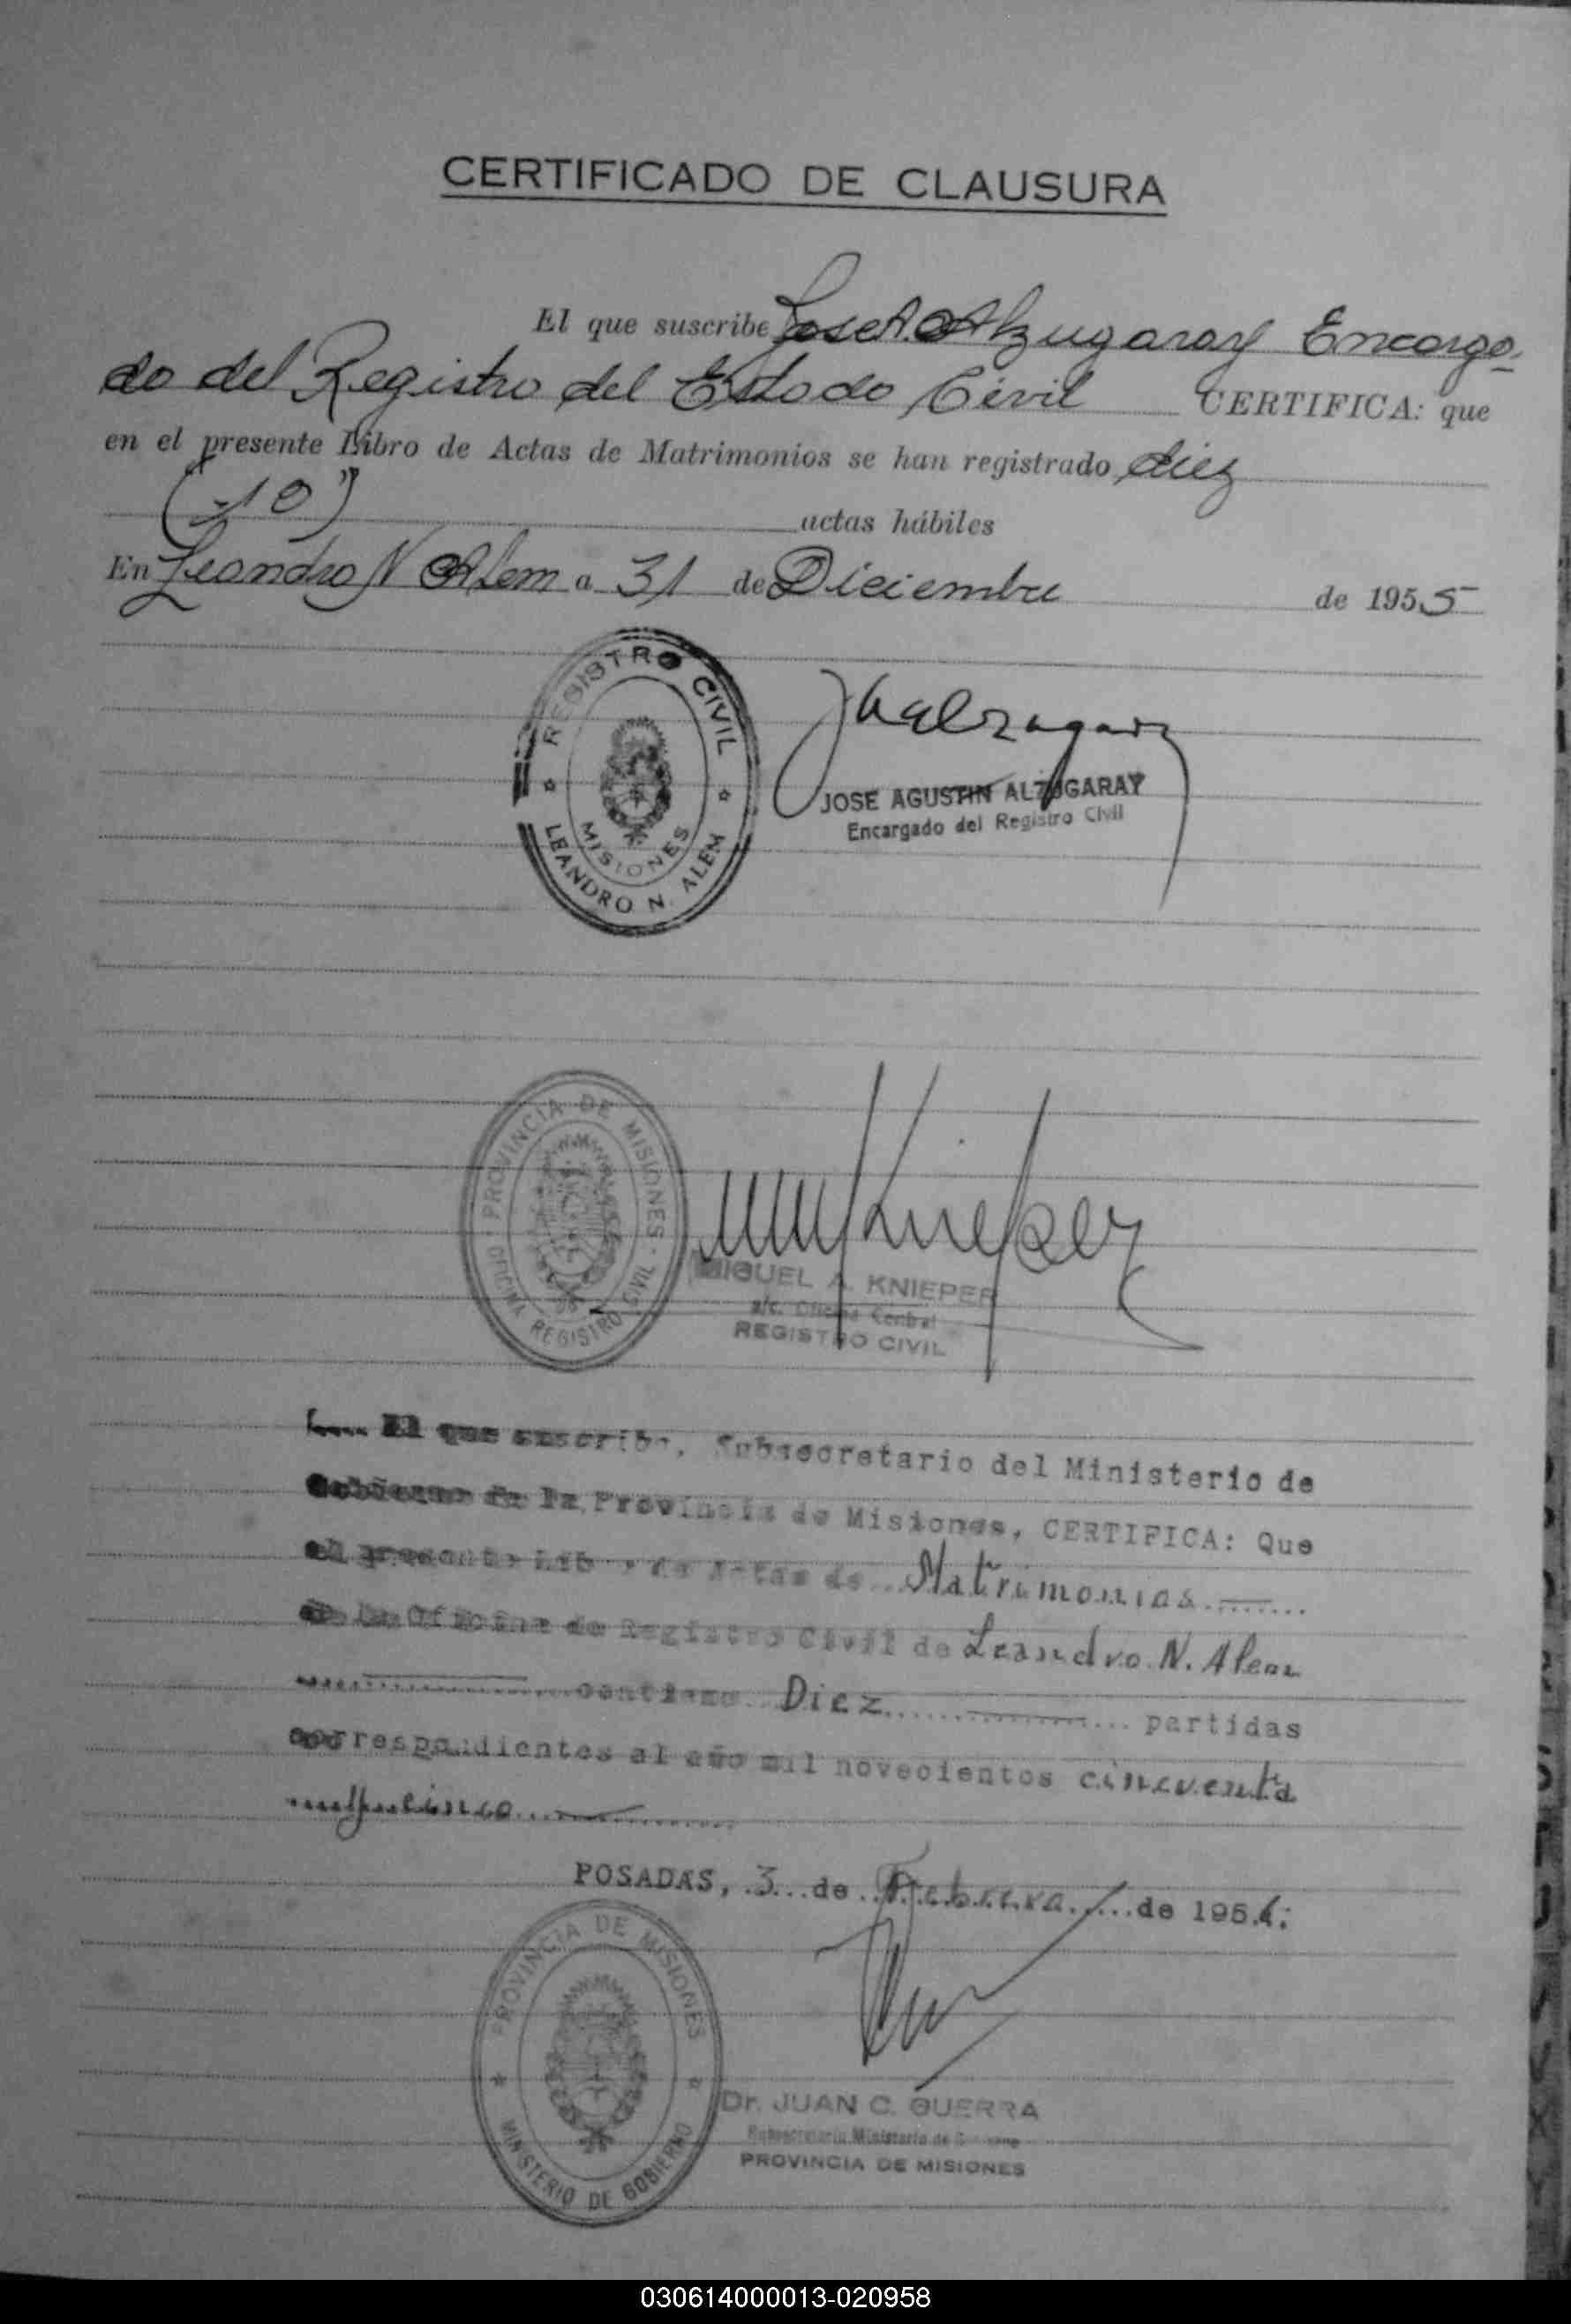 CERTIFICADO DE CLAUSURA
El que suscribe Jose A. Alzugaray Encarga-
do del Registro del Estado Civil CERTIFICA: que
en el presente Libro de Actas de Matrimonios se han registrado diez
(10) actas hábiles
En Leandro N Alem a 31 de Diciembre de 1955
REGISTRO CIVIL
MISIONES
LEANDRO N. ALEM
JOSE AGUSTIN ALZUGARAY
Encargado del Registro Civil
PROVINCIA DE MISIONES
OFICINA REGISTRO CIVIL
Knieper
MIGUEL A. KNIEPER
a/c. Oficina Central
REGISTRO CIVIL
El que suscribe, Subsecretario del Ministerio de
Gobierno de la Provincia de Misiones, CERTIFICA: Que
el presente Libro de Actas de Matrimonios
de la Oficina de Registro Civil de Leandro N. Alem
contiene Diez partidas
correspondientes al año mil novecientos cincuenta
y cinco
POSADAS, 3 de Febrero de 1956.
PROVINCIA DE MISIONES
MINISTERIO DE GOBIERNO
Dr. JUAN C. GUERRA
Subsecretario Ministerio de
PROVINCIA DE MISIONES
030614000013-020958